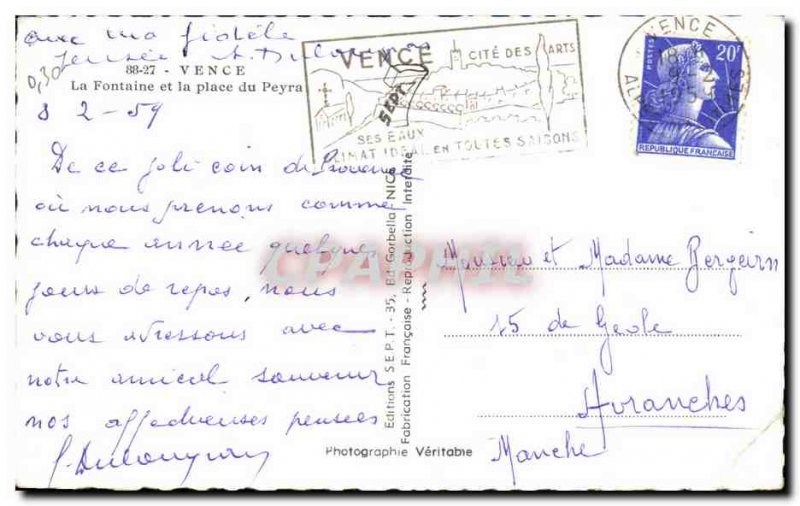 avec ma fidèle
pensée
88-27 - VENCE
La Fontaine et la place du Peyra
0,30
8 2 - 59
De ce joli coin de Provence
où nous prenons comme
chaque année quelques
jours de repos, nous
vous adressons avec
notre amical souvenir
nos affectueuses pensées
VENCE
CITÉ DES ARTS
SES EAUX
CLIMAT IDEAL EN TOUTES SAISONS
SEPT
VENCE
POSTES
20F
REPUBLIQUE FRANÇAISE
Editions S.E.P.T. - 35, Bd Gorbella, NICE
Fabrication Française - Reproduction Interdite
Photographie Véritable
CPAPHIL
Monsieur et Madame
15 de Geole
Avranches
Manche